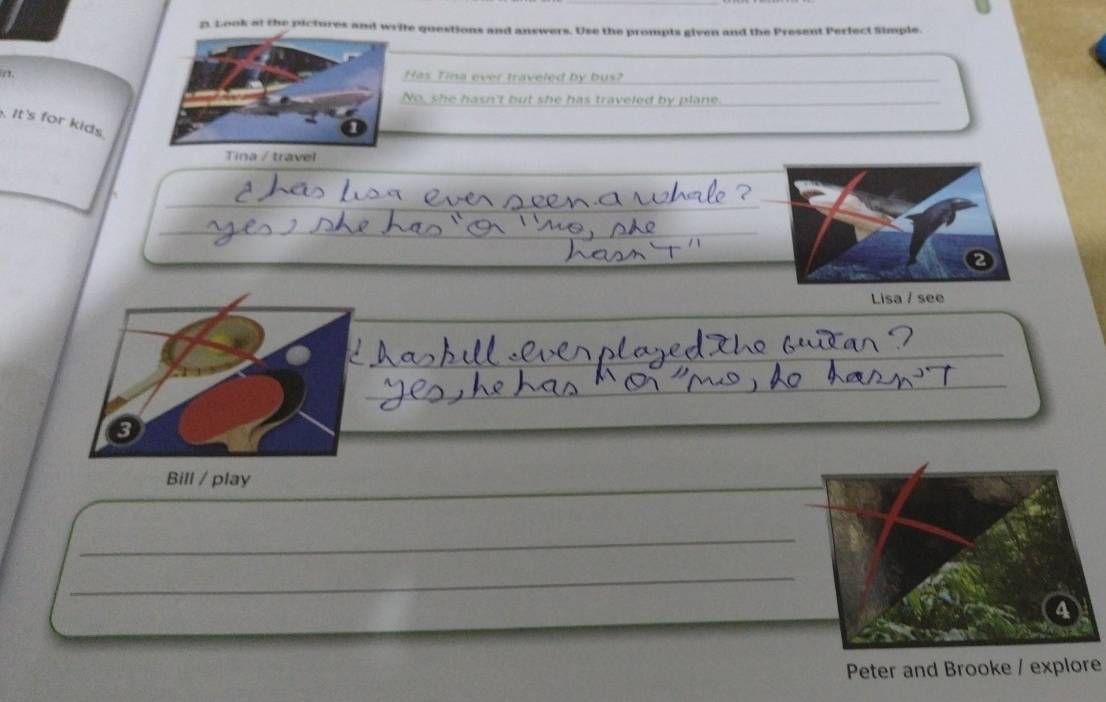 D. Look at the pictures and write questions and answers. Use the prompts given and the Present Perfect Simple.
Has Tina ever traveled by bus?
No, she hasn't but she has traveled by plane.
1
Tina / travel
It's for kids.
¿has lisa ever seen a whale?
yes, she has" or "no, she
hasn't"
2
Lisa / see
¿has bill ever played the guitar?
yes, he has" or "no, he hasn't
3
Bill / play
4
Peter and Brooke / explore